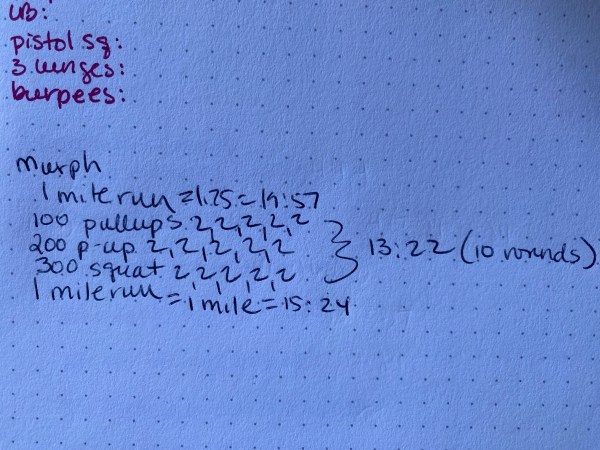 UB:
pistol sq:
3. lunges:
burpees:
murph
1 mile run = 1.25 = 19:57
100 pullups 2,2,2,2,2
200 p-up 2,2,2,2,2
300 squat 2,2,2,2,2
} 13:22 (10 rounds)
1 mile run = 1 mile = 15:24